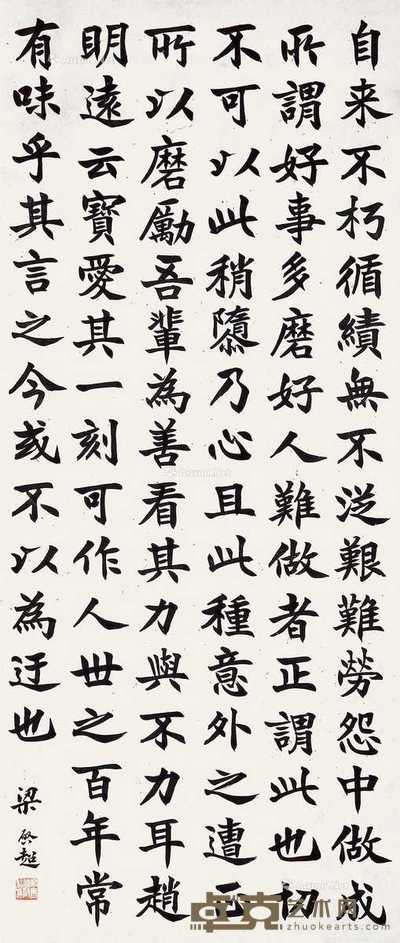 自来不朽循績無不從艱難勞怨中做成
所謂好事多磨好人難做者正謂此也切
不可以此稍隳乃心且此種意外之遭正
所以磨勵吾輩為善看其力與不力耳趙
明遠云寶愛其一刻可作人世之百年常
有味乎其言之今或不以為迂也
梁啟超
卓克艺术网
zhuokearts.com